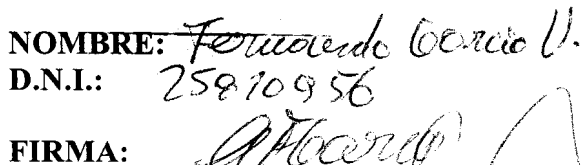 NOMBRE: Fernando Garcia U.
D.N.I.: 25810956
FIRMA: